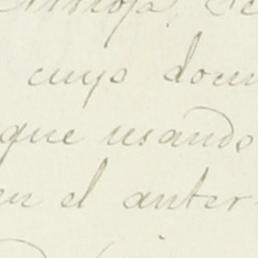 cuyo docu
que usando
en el anter